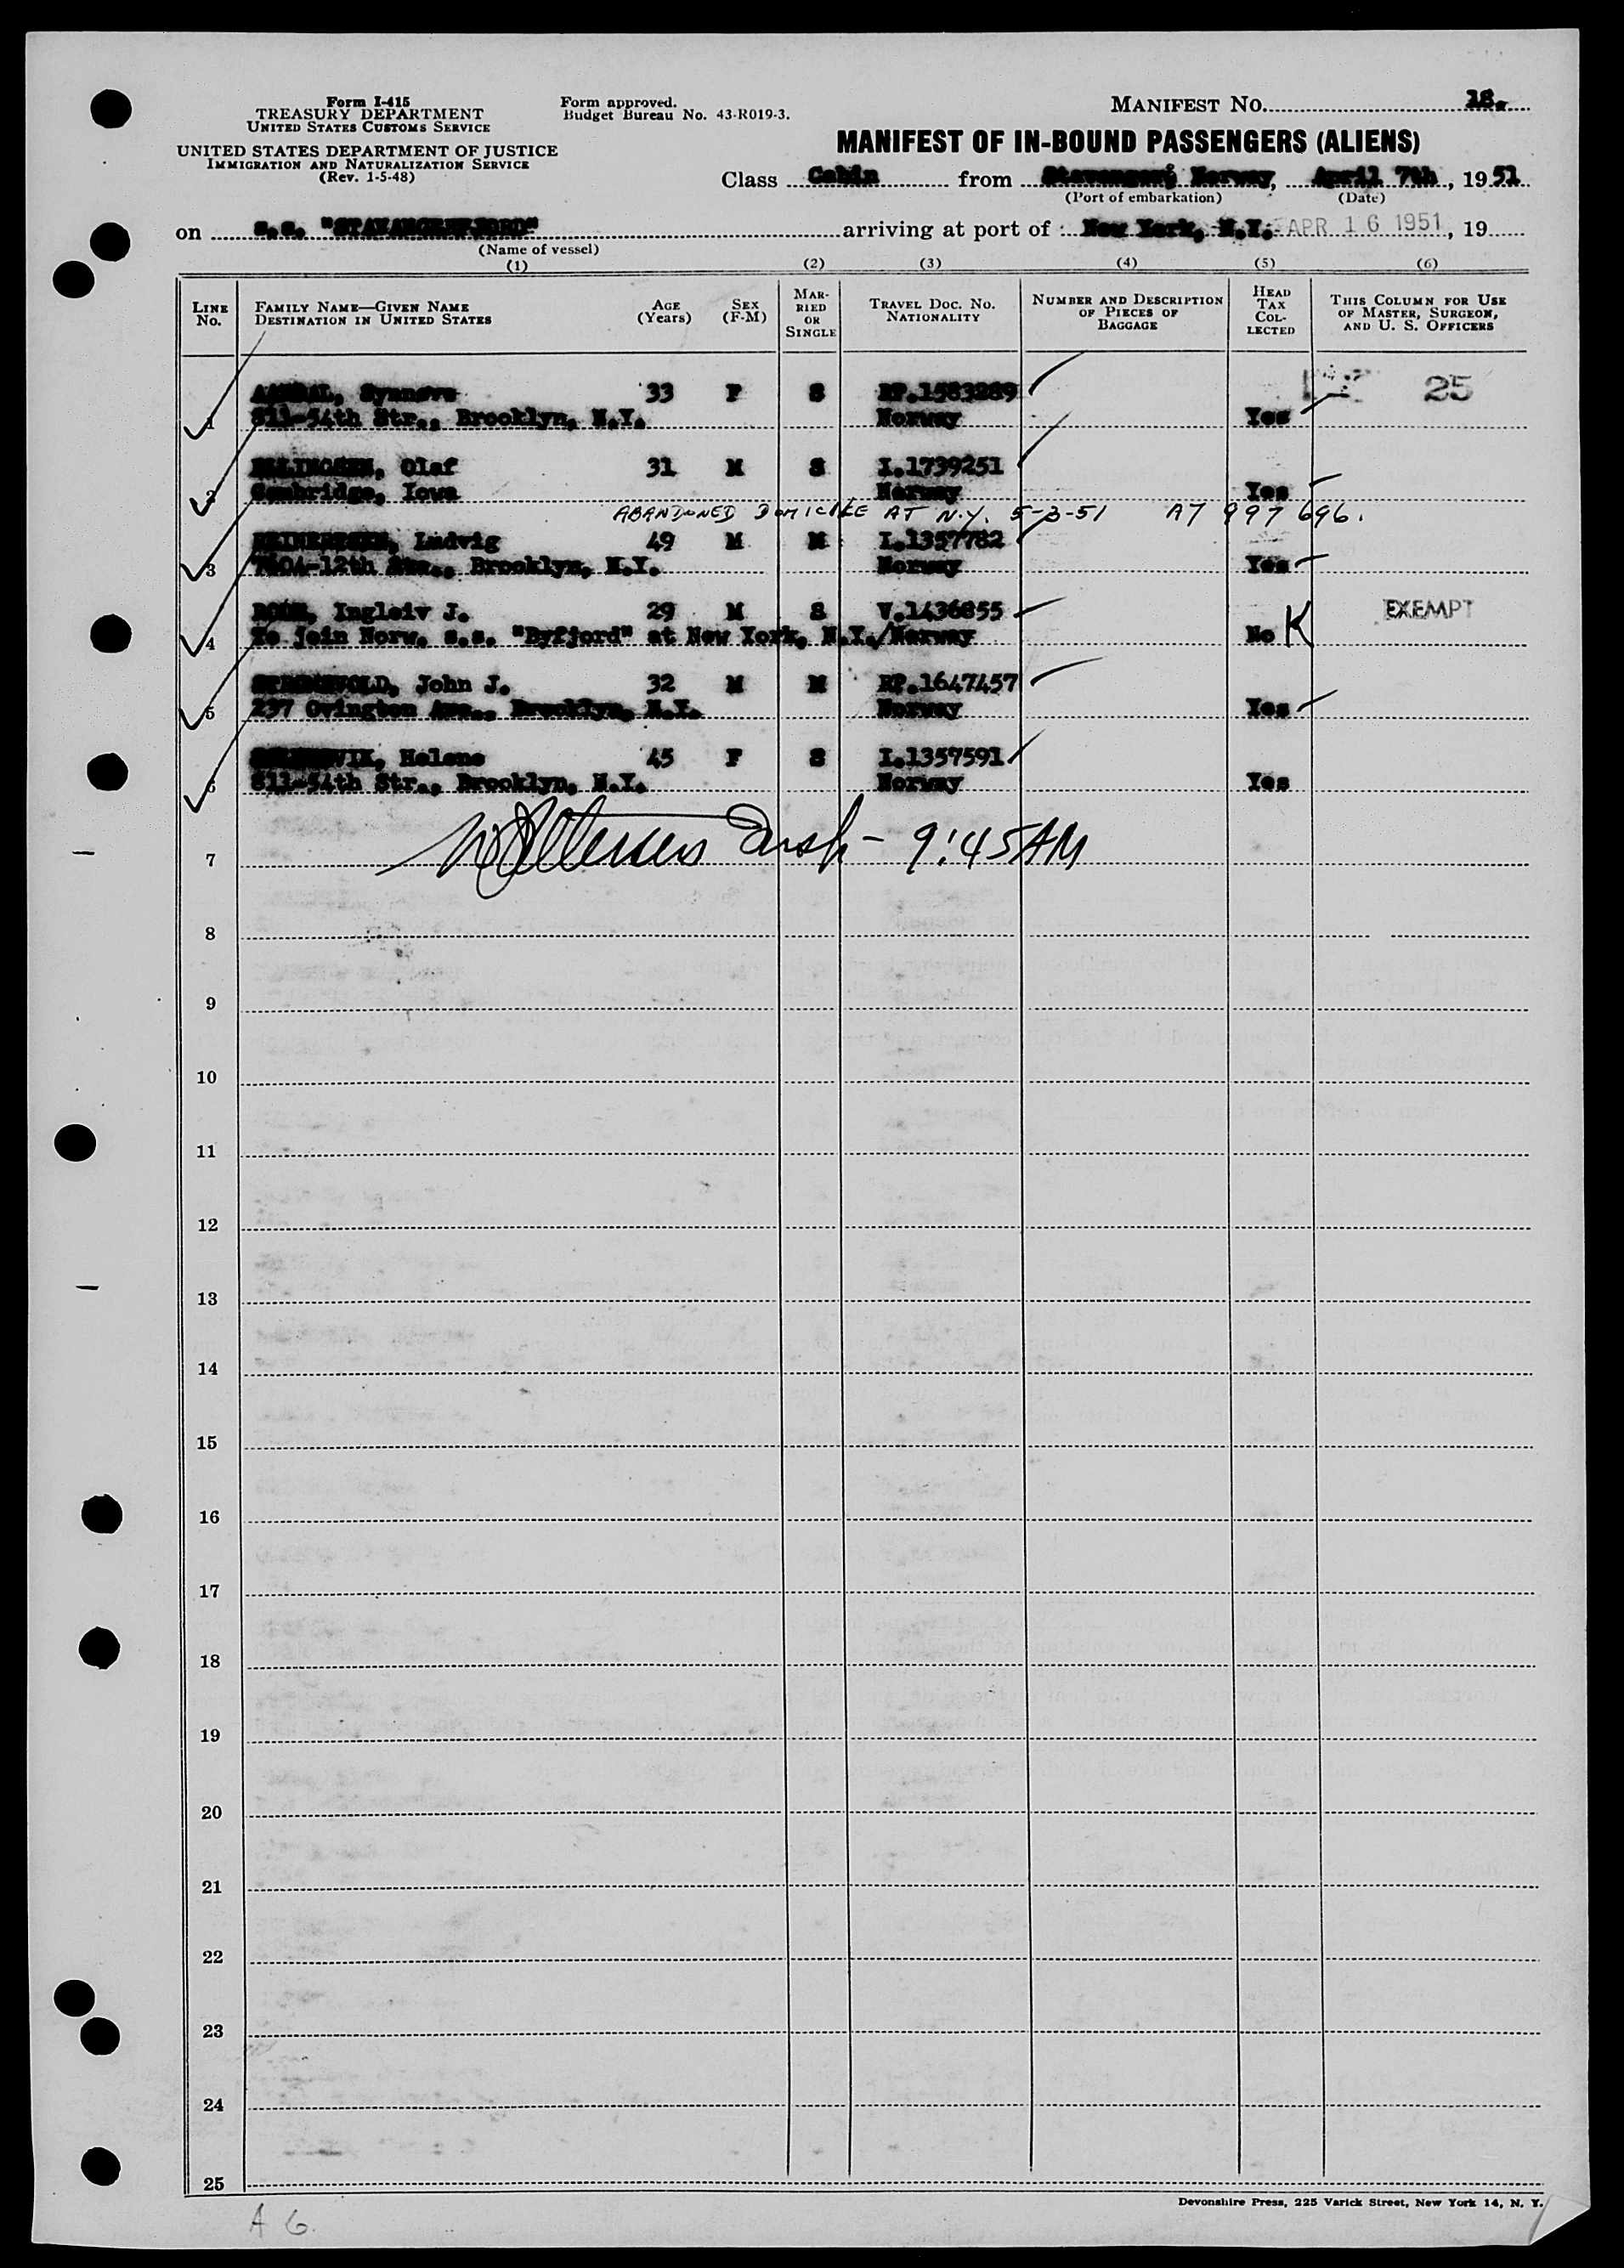 Form I-415
TREASURY DEPARTMENT
UNITED STATES CUSTOMS SERVICE
UNITED STATES DEPARTMENT OF JUSTICE
IMMIGRATION AND NATURALIZATION SERVICE
(Rev. 1-5-48)
Form approved.
Budget Bureau No. 43-R019-3.
MANIFEST NO. 18.
MANIFEST OF IN-BOUND PASSENGERS (ALIENS)
Class Cabin from Stavanger, Norway, April 7th, 1951
(Port of embarkation) (Date)
on s.s. "STAVANGERFJORD" arriving at port of New York, N.Y. APR 16 1951, 19
(Name of vessel)
(1) (2) (3) (4) (5) (6)
LINE No. FAMILY NAME—GIVEN NAME DESTINATION IN UNITED STATES AGE (Years) SEX (F-M) MARRIED OR SINGLE TRAVEL DOC. NO. NATIONALITY NUMBER AND DESCRIPTION OF PIECES OF BAGGAGE HEAD TAX COLLECTED THIS COLUMN FOR USE OF MASTER, SURGEON, AND U. S. OFFICERS
Synnøve 33 F S RP.1583289 25
1 811-54th Str., Brooklyn, N.Y. Norway Yes
ELLINGSEN, Olaf 31 M S I.1739251
2 Cambridge, Iowa Norway Yes
ABANDONED DOMICILE AT N.Y. 5-3-51 A7 997 696.
REINERTSEN, Ludvig 49 M M I.1357782
3 12th Brooklyn, N.Y. Norway Yes
Ingleiv J. 29 M S V.1436855 EXEMPT
4 To join Norw. s.s. "Byfjord" at New York, N.Y./Norway No K
John J. 32 M M RP.1647457
5 237 Ovington Ave., Brooklyn, N.Y. Norway Yes
Helene 45 F S I.1357591
6 811-54th Str., Brooklyn, N.Y. Norway Yes
7 9:45 AM
8
9
10
11
12
13
14
15
16
17
18
19
20
21
22
23
24
25
Devonshire Press, 225 Varick Street, New York 14, N. Y.
A 6